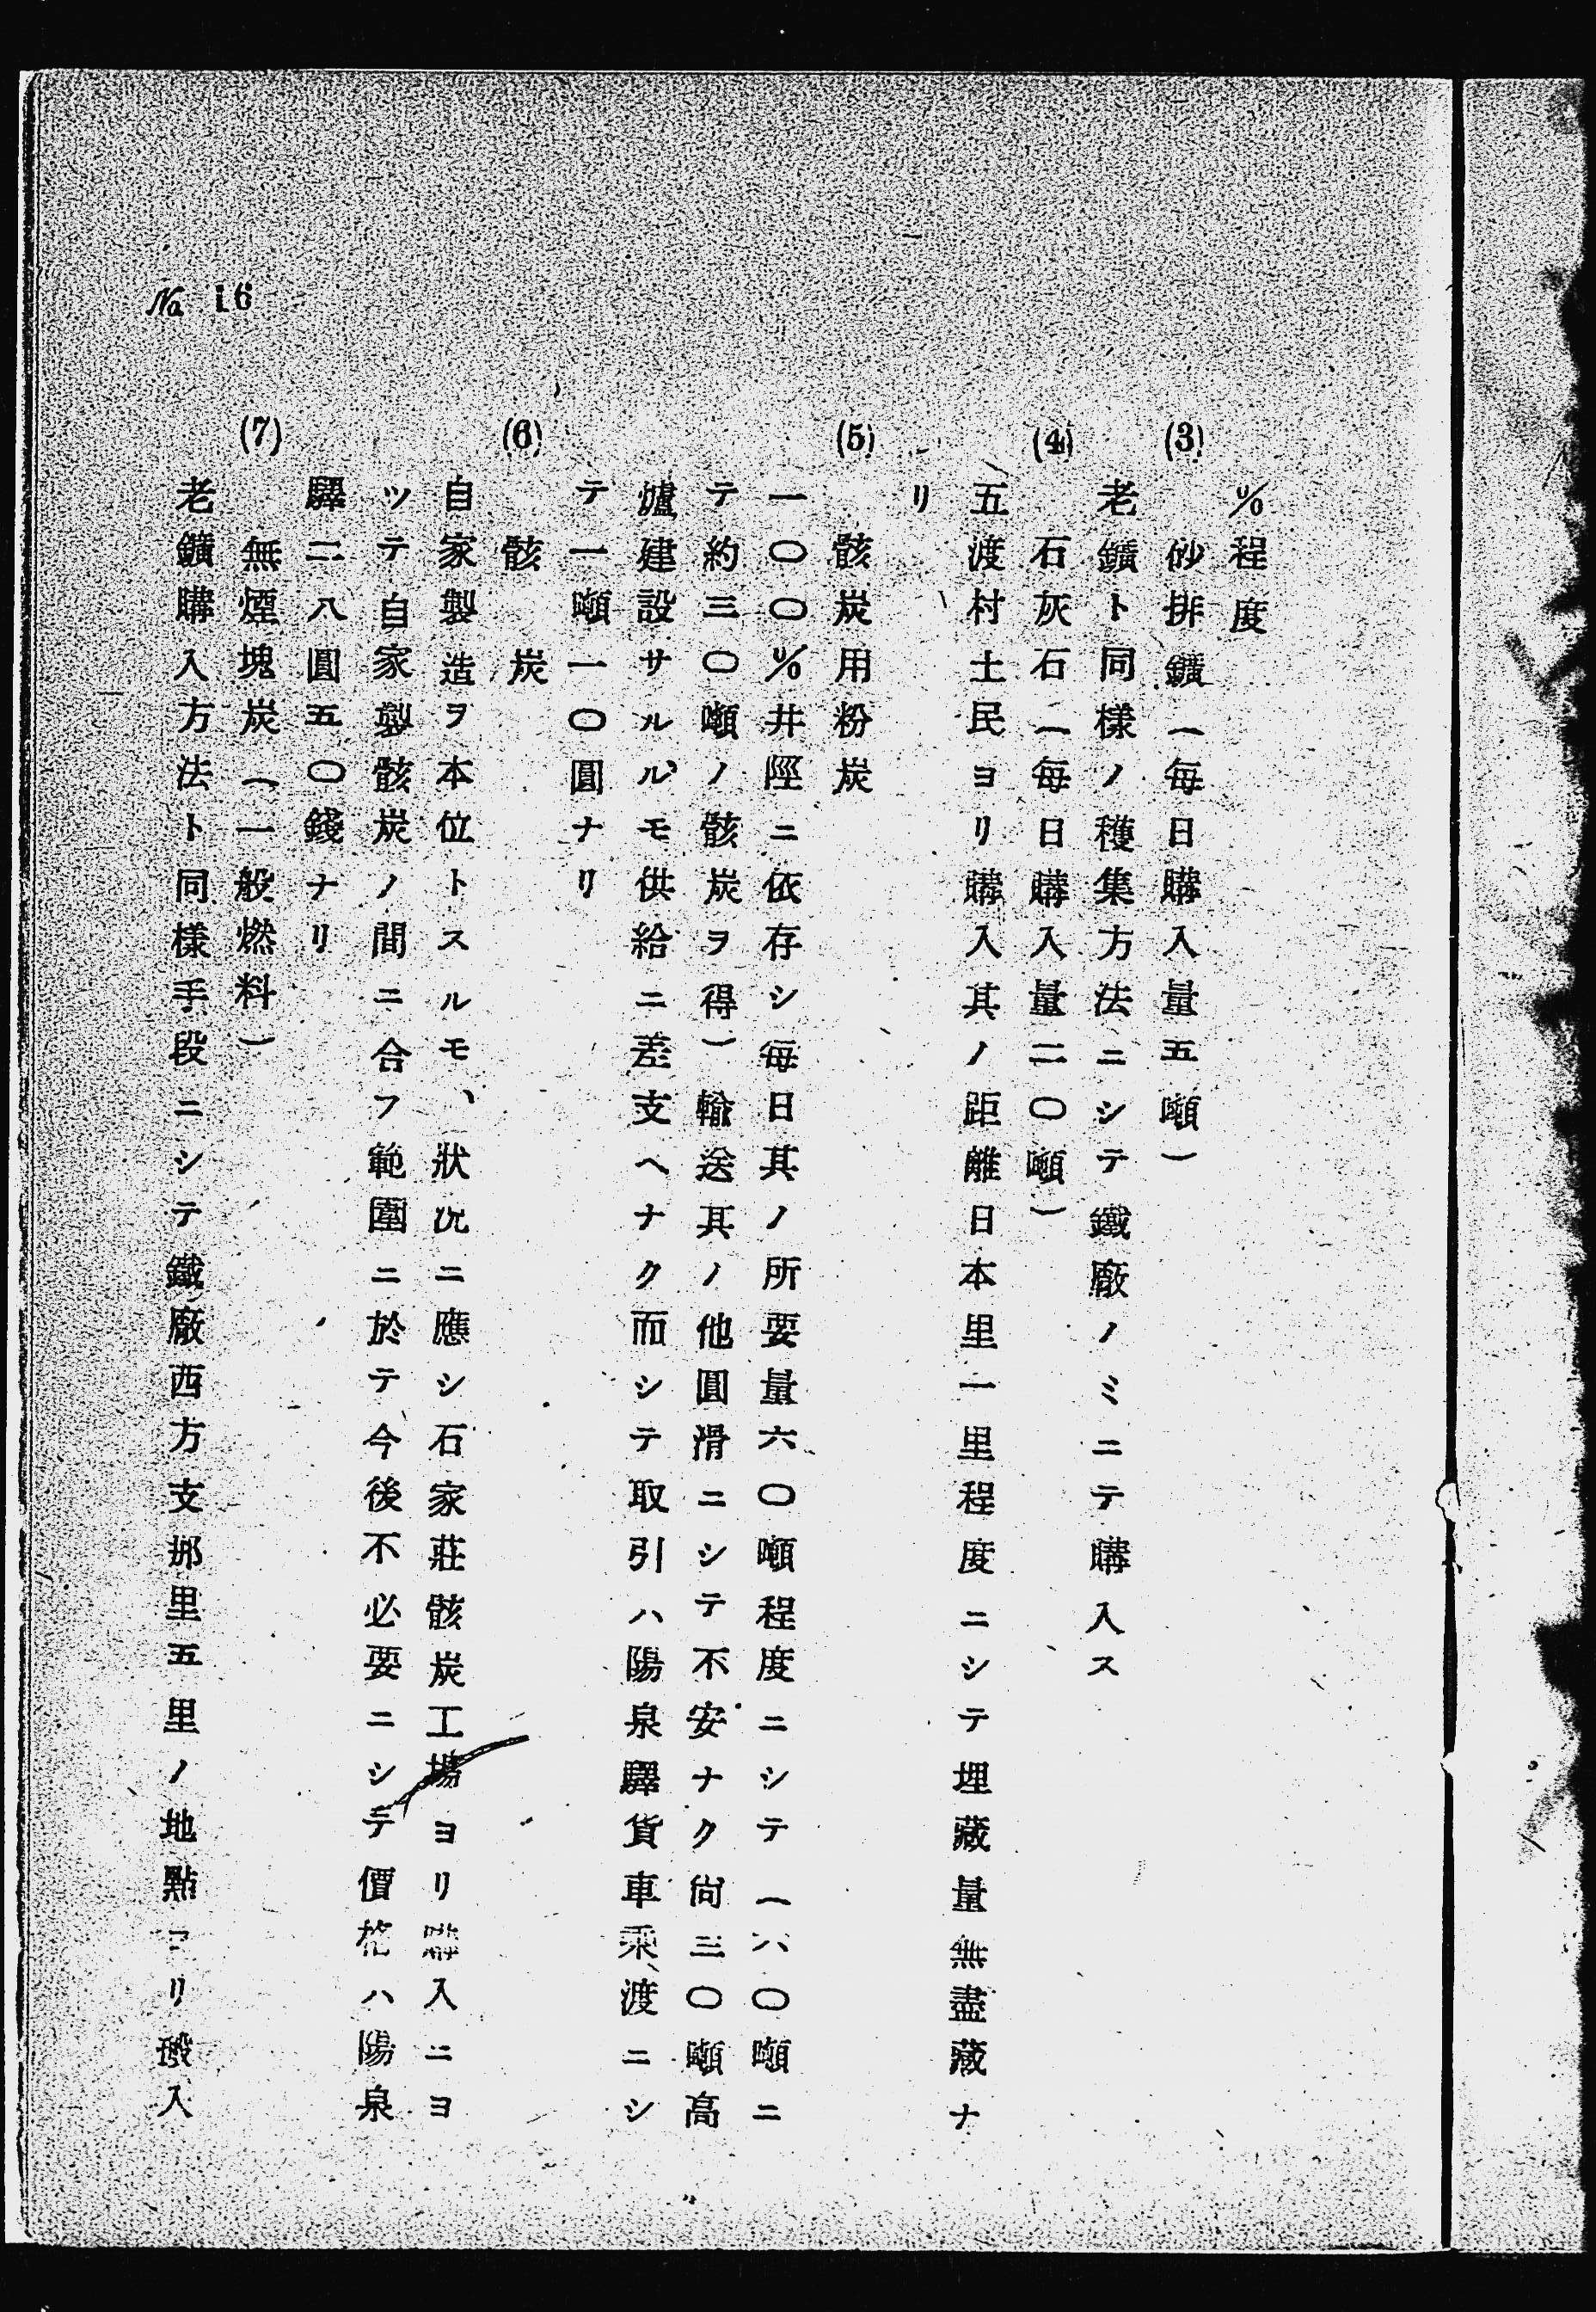 %程度
(3) 砂排鑛(毎日購入量五噸)
老鑛ト同樣ノ穫集方法ニシテ鐵廠ノミニテ購入ス
(4) 石灰石(毎日購入量二〇噸)
五渡村土民ヨリ購入其ノ距離日本里一里程度ニシテ埋藏量無盡藏ナ
リ
(5) 骸炭用粉炭
一〇〇%井陘ニ依存シ毎日其ノ所要量六〇噸程度ニシテ(六〇噸ニ
テ約三〇噸ノ骸炭ヲ得)輸送其ノ他圓滑ニシテ不安ナク尚三〇噸高
爐建設サルルモ供給ニ差支ヘナク而シテ取引ハ陽泉驛貨車乘渡ニシ
テ一噸一〇圓ナリ
(6) 骸炭
自家製造ヲ本位トスルモ、狀況ニ應シ石家莊骸炭工場ヨリ購入ニヨ
ツテ自家製骸炭ノ間ニ合フ範圍ニ於テ今後不必要ニシテ價格ハ陽泉
驛二八圓五〇錢ナリ
(7) 無煙塊炭(一般燃料)
老鑛購入方法ト同樣手段ニシテ鐵廠西方支那里五里ノ地點ヨリ搬入
No. 16